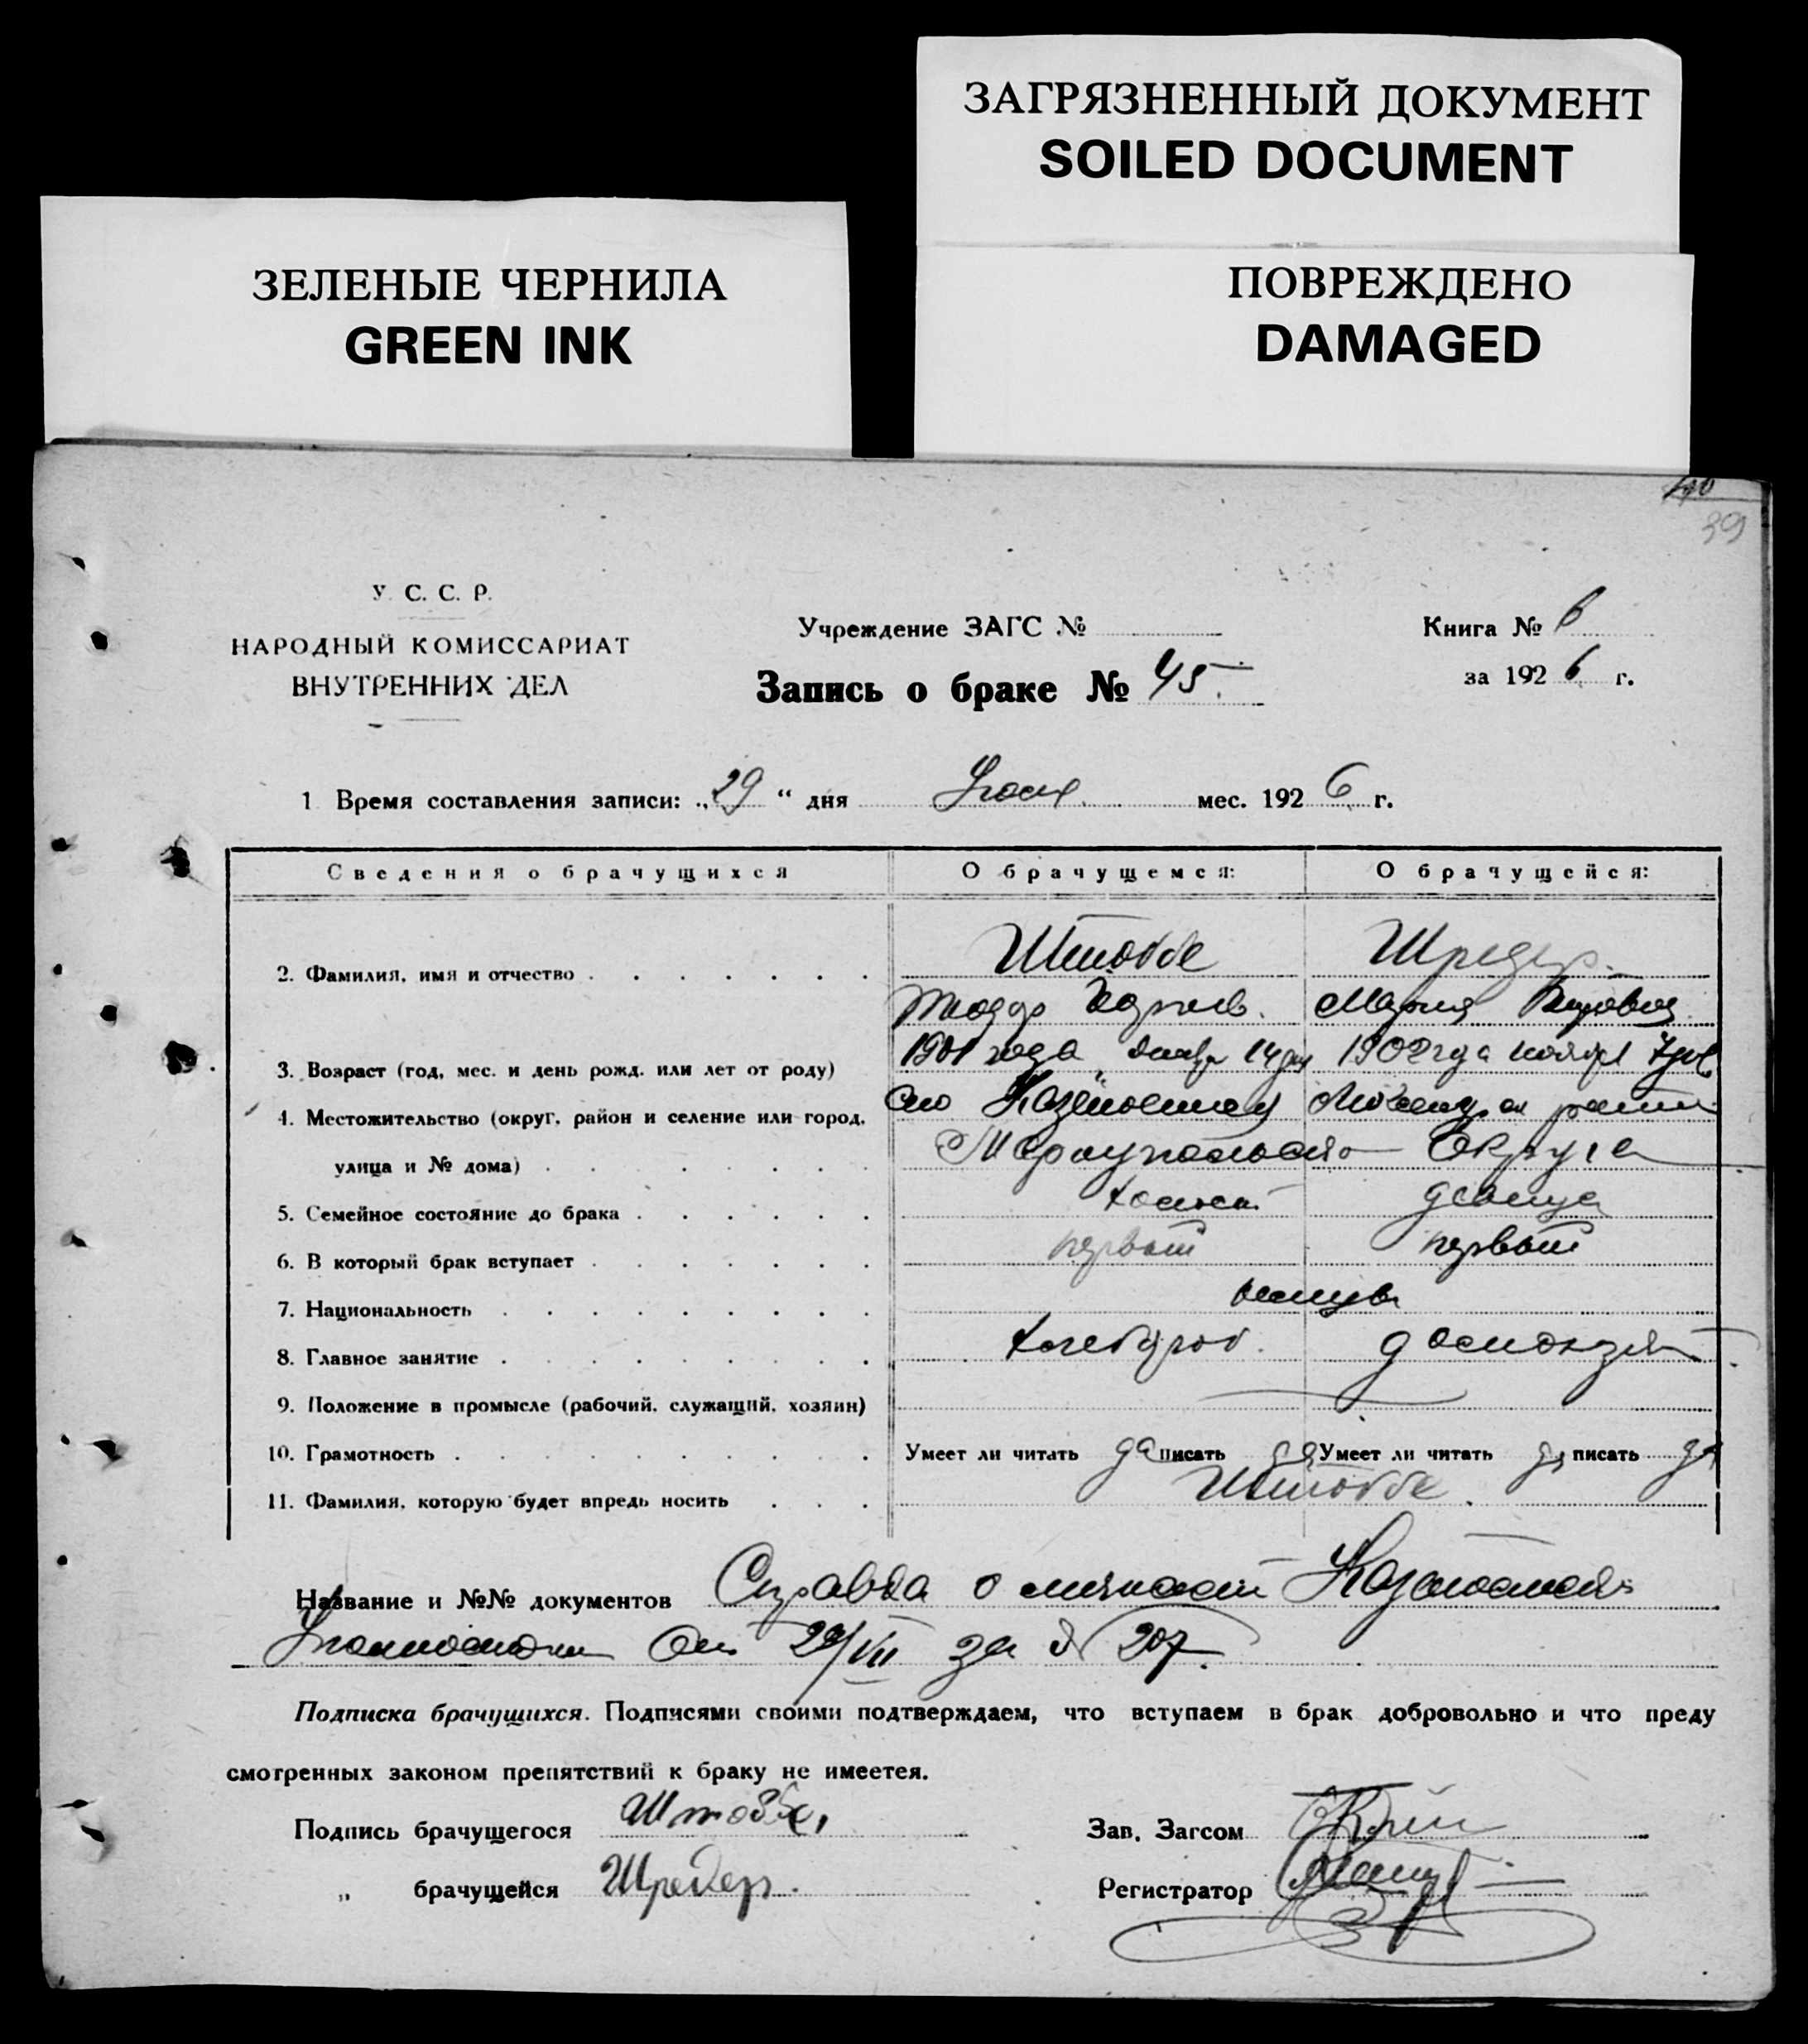 ЗАГРЯЗНЕННЫЙ ДОКУМЕНТ
SOILED DOCUMENT
ЗЕЛЕНЫЕ ЧЕРНИЛА
GREEN INK
ПОВРЕЖДЕНО
DAMAGED
40
39
У. С. С. Р.
НАРОДНЫЙ КОМИССАРИАТ
ВНУТРЕННИХ ДЕЛ
Учреждение ЗАГС №
Запись о браке № 45.
Книга № 6
за 1926 г.
1 Время составления записи: „29“ дня Июля мес. 1926 г.
Сведения о брачущихся О брачущемся: О брачущейся:
Штоббе Шредер.
2. Фамилия, имя и отчество
Мария
1901 года 14 1902 года ноября 7
3. Возраст (год, мес. и день рожд. или лет от роду)
4. Местожительство (округ, район и селение или город,
Мариупольского Округа
улица и № дома)
5. Семейное состояние до брака холост девица
6. В который брак вступает первый первый
7. Национальность немцы
8. Главное занятие хлебороб. домохоз
9. Положение в промысле (рабочий, служащий, хозяин)
10. Грамотность Умеет ли читать да писать да Умеет ли читать да писать да
11. Фамилия, которую будет впредь носить Штоббе.
Название и №№ документов Справка о личности
от 29/VII за № 207.
Подписка брачущихся. Подписями своими подтверждаем, что вступаем в брак добровольно и что преду
смотренных законом препятствий к браку не имеетея.
Подпись брачущегося Штоббе,
Зав. Загсом
„ брачущейся Шредер.
Регистратор